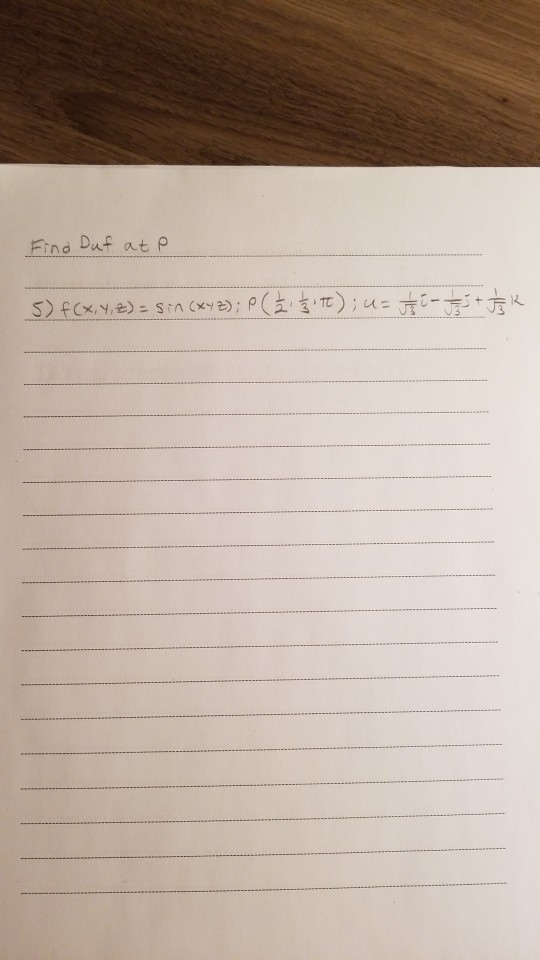 Find Duf at P
5) f(x,y,z) = sin(xyz); P(1/2, 1/3, π); u = 1/√3 i - 1/√3 j + 1/√3 k